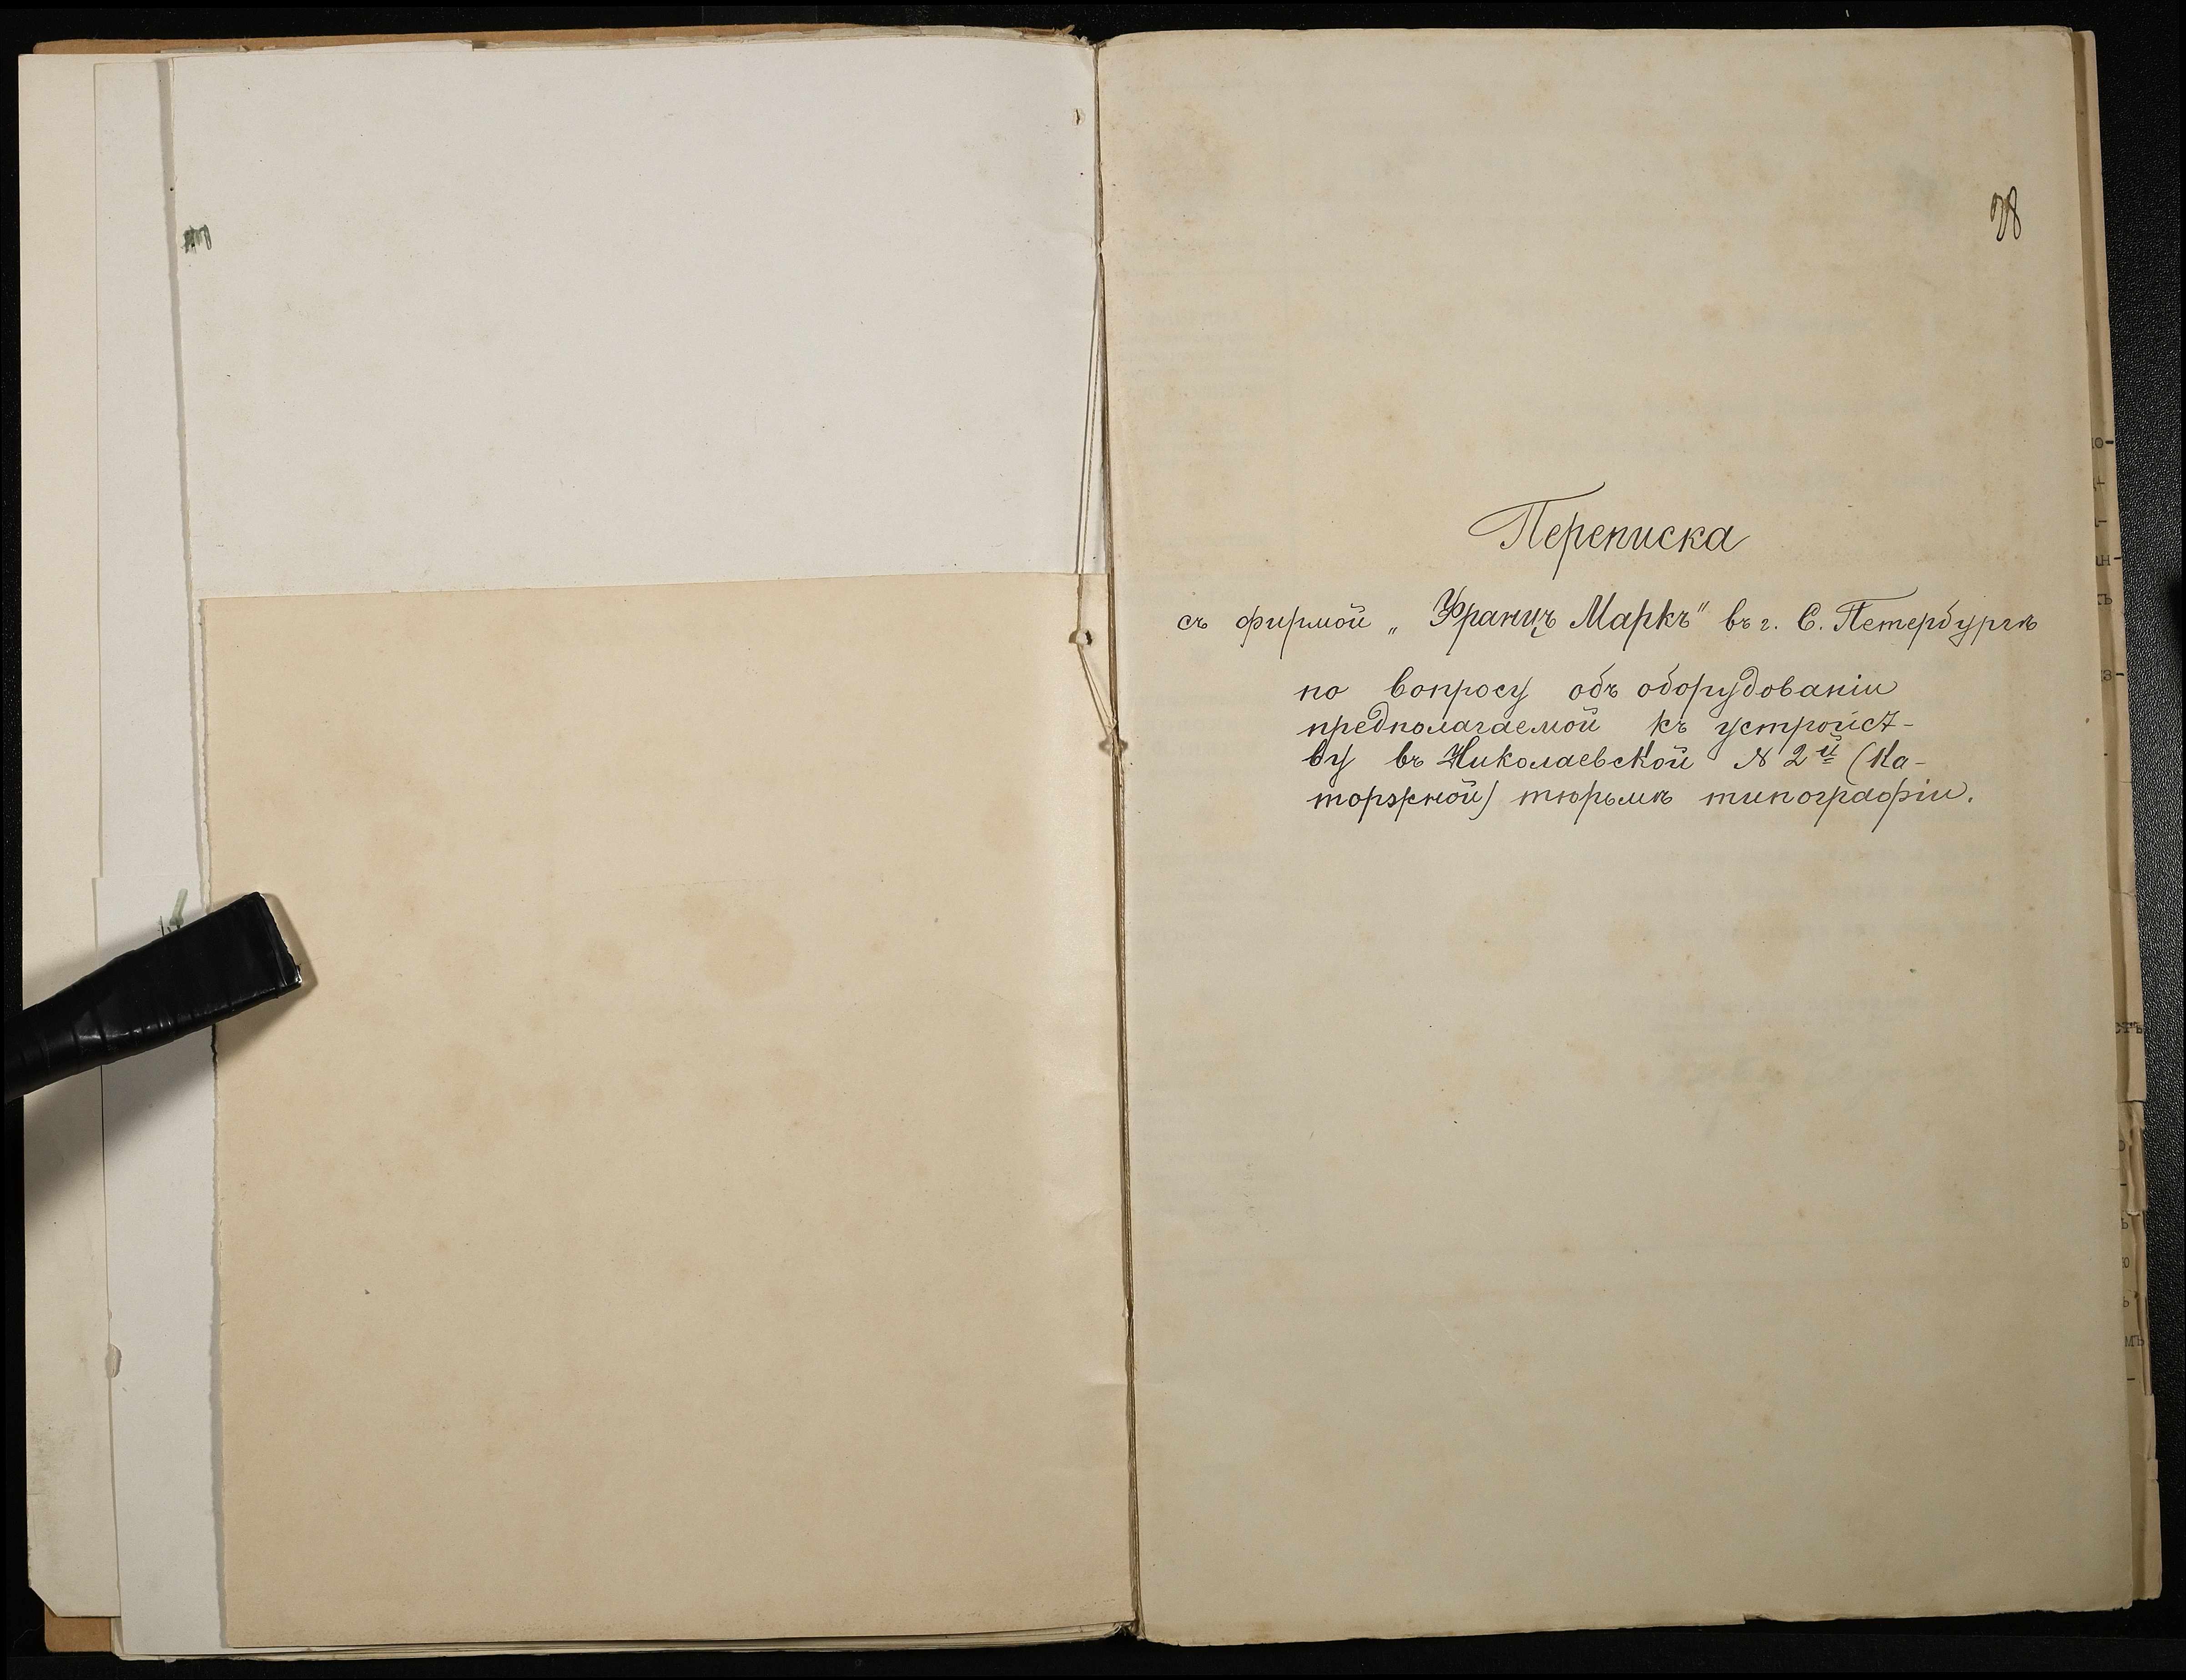 28
Переписка
съ фирмой „Францъ Маркъ" въ г. С. Петербургѣ
по вопросу объ оборудованіи
предполагаемой къ устройст-
ву въ Николаевской № 2й (Ка-
торжной) тюрьмѣ типографіи.